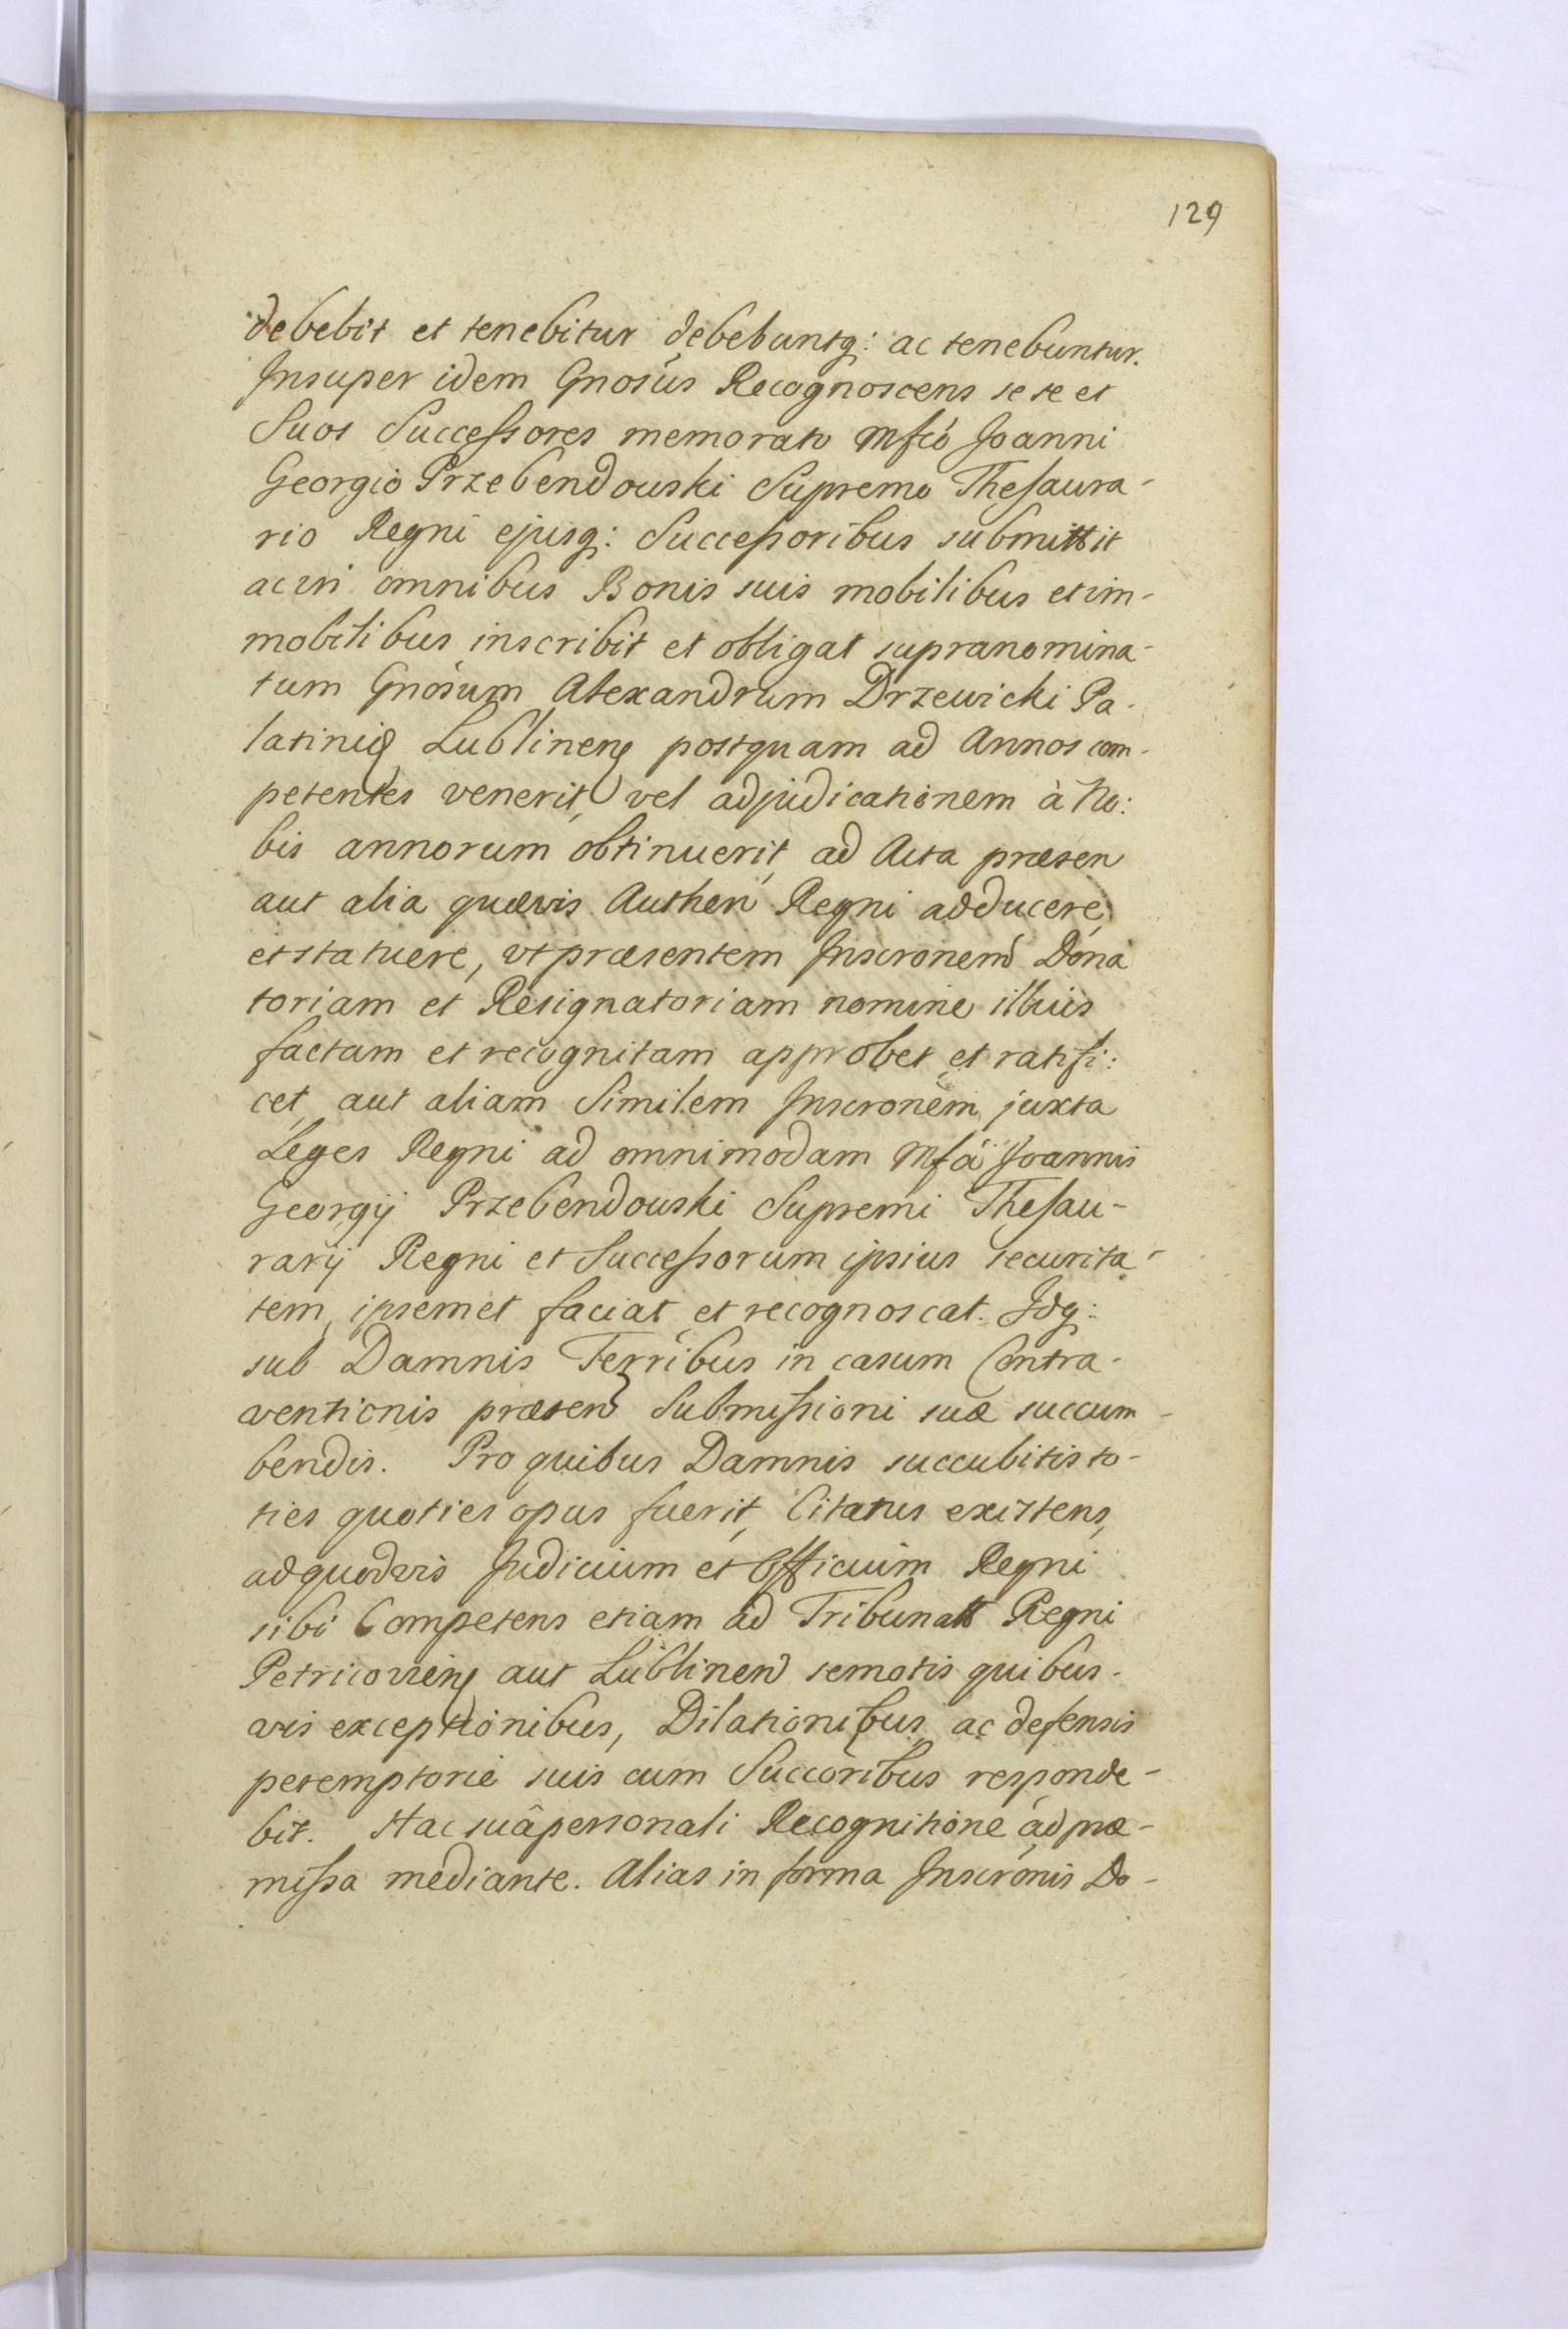 129
debebit et tenebitur debebuntq: ac tenebuntur.
Insuper idem Gnosus Recognoscens se se et
Suos Successores memorato Mfco Joanni
Georgio Przebendouski Supremo Thesaura-
rio Regni ejusq: Successoribus submittit
ac in omnibus Bonis suis mobilibus et im-
mobilibus inscribit et obligat supranomina-
tum Gnosum Alexandrum Drzewicki Pa-
latinid Lublinen postquam ad Annos com-
petentes venerit, vel adjudicationem à No:
bis annorum obtinuerit, ad Acta præsen
aut alia quævis Authen Regni adducere,
et statuere, vt præsentem Inscronem Dona
toriam et Resignatoriam nomine illius
factam et recognitam approbet et ratifi:
cet, aut aliam Similem Inscronem juxta
Leges Regni ad omnimodam Mfci Joannis
Georgij Przebendouski Supremi Thesau-
rarij Regni et Successorum ipsius securita-
tem, ipsemet faciat et recognoscat. Idq:
sub Damnis Terribus in casum Contra-
ventionis præsen Submissioni suæ succum-
bendis. Pro quibus Damnis succubitis to-
ties quoties opus fuerit, Citatus existens,
ad quodvis Judicium et Officium Regni
sibi Competens etiam ad Tribunall Regni
Petricovien aut Lublinen semotis quibus-
vis exceptionibus, Dilationibus, ac defensis
peremptorie suis cum Succoribus responde-
bit. Hac suâ personali Recognitione ad præ-
missa mediante. Alias in forma Inscronis Do-